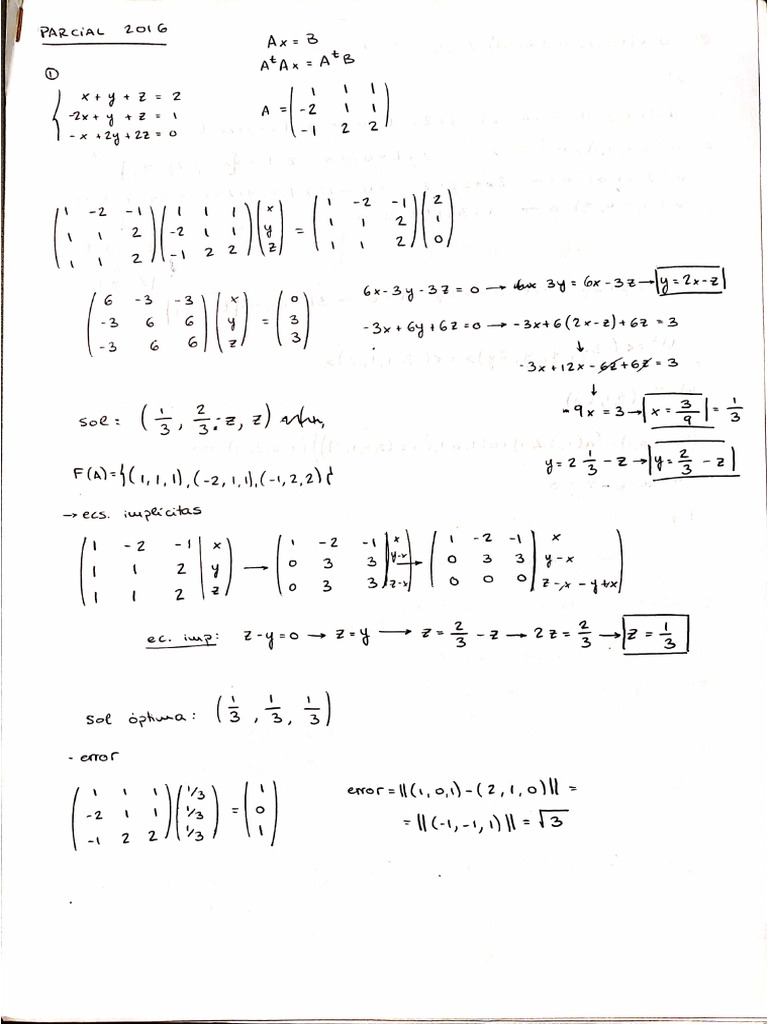 PARCIAL 2016
Ax = B
AᵗAx = AᵗB
①
{ x + y + z = 2
-2x + y + z = 1
-x + 2y + 2z = 0
A = ( 1 1 1
-2 1 1
-1 2 2 )
( 1 -2 -1 ) ( 1 1 1 ) ( x ) = ( 1 -2 -1 ) ( 2 )
( 1 1 2 ) ( -2 1 1 ) ( y ) ( 1 1 2 ) ( 1 )
( 1 1 2 ) ( -1 2 2 ) ( z ) ( 1 1 2 ) ( 0 )
( 6 -3 -3 ) ( x ) = ( 0 )
( -3 6 6 ) ( y ) ( 3 )
( -3 6 6 ) ( z ) ( 3 )
6x - 3y - 3z = 0 → 3y = 6x - 3z → y = 2x - z
-3x + 6y + 6z = 0 → -3x + 6(2x - z) + 6z = 3
↓
-3x + 12x - 6z + 6z = 3
↓
9x = 3 → x = 3/9 = 1/3
y = 2 1/3 - z → y = 2/3 - z
sol: (1/3, 2/3 - z, z)
F(A) = {(1,1,1), (-2,1,1), (-1,2,2)}
→ ecs. implícitas
( 1 -2 -1 | x ) → ( 1 -2 -1 | x ) → ( 1 -2 -1 | x )
( 1 1 2 | y ) ( 0 3 3 | y-x ) ( 0 3 3 | y-x )
( 1 1 2 | z ) ( 0 3 3 | z-x ) ( 0 0 0 | z-x-y+x )
ec. imp: z - y = 0 → z = y → z = 2/3 - z → 2z = 2/3 → z = 1/3
sol óptima: (1/3, 1/3, 1/3)
- error
( 1 1 1 ) ( 1/3 ) = ( 1 )
( -2 1 1 ) ( 1/3 ) ( 0 )
( -1 2 2 ) ( 1/3 ) ( 1 )
error = ||(1,0,1) - (2,1,0)|| =
= ||(-1,-1,1)|| = √3